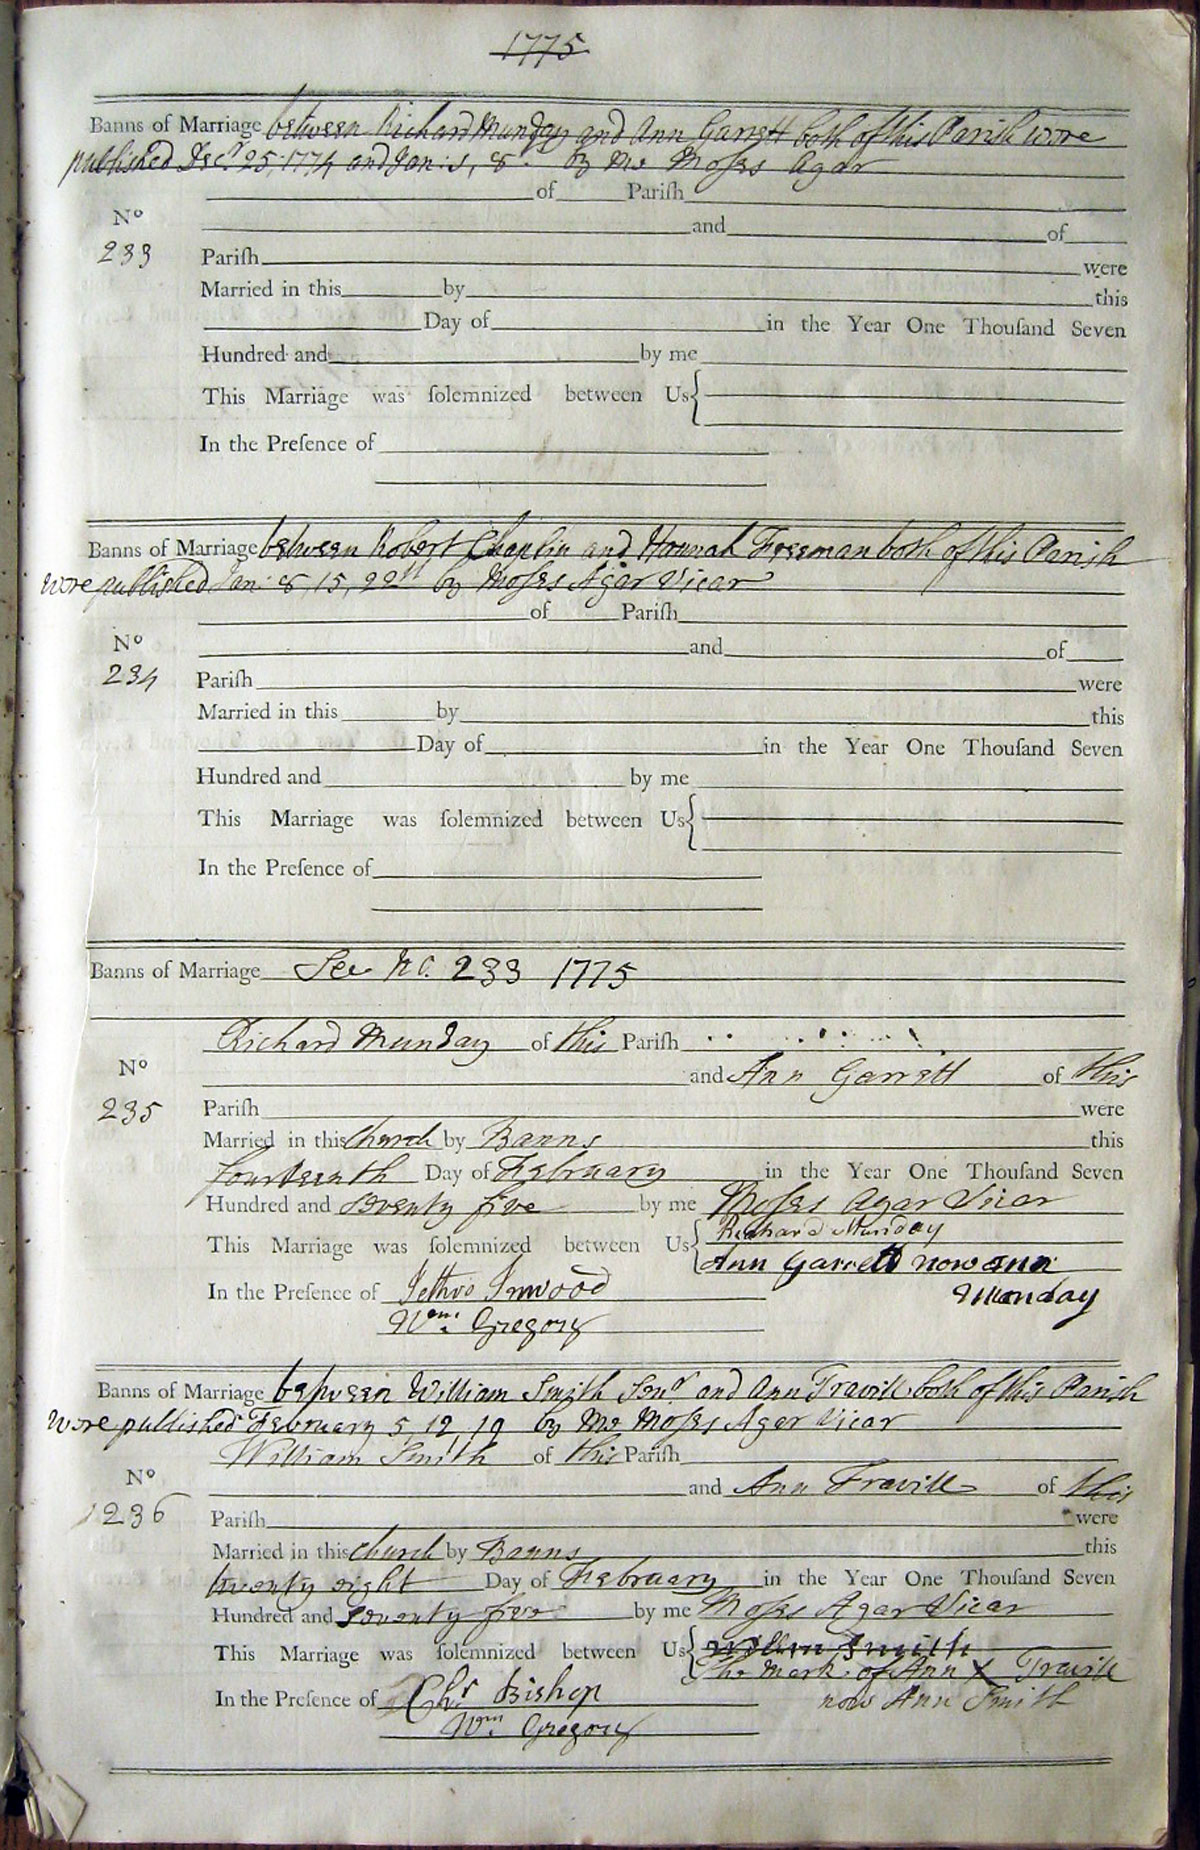 1775
Banns of Marriage between Richard Munday and Ann Garrett both of this Parish were
published Decr 25, 1774 and Jan: 1, 8. by me Moses Agar
of Parish
No
and of
233
Pariſh were
Married in this by this
Day of in the Year One Thouſand Seven
Hundred and by me
This Marriage was ſolemnized between Us
In the Preſence of
Banns of Marriage between Robert Chaplin and Hannah Freeman both of this Parish
were published Jan: 8, 15, 22d by Moses Agar Vicar
of Pariſh
No
and of
234
Pariſh were
Married in this by this
Day of in the Year One Thouſand Seven
Hundred and by me
This Marriage was ſolemnized between Us
In the Preſence of
Banns of Marriage See No. 233 1775
Richard Munday of this Pariſh
No
and Ann Garrett of this
235
Pariſh were
Married in this Church by Banns this
fourteenth Day of February in the Year One Thouſand Seven
Hundred and seventy five by me Moses Agar Vicar
Richard Munday
This Marriage was ſolemnized between Us
Ann Garrett now ann
Munday
In the Preſence of Jethro Inwood
Wm. Gregory
Banns of Marriage between William Smith Senr and Ann Travill both of this Parish
were published February 5, 12, 19 by me Moses Agar Vicar
William Smith of this Pariſh
No
and Ann Travill of this
236
Pariſh were
Married in this Church by Banns this
twenty eight Day of February in the Year One Thouſand Seven
Hundred and seventy five by me Moses Agar Vicar
This Marriage was ſolemnized between Us Willm Smith
The Mark of Ann X Travill
now Ann Smith
In the Preſence of Chr Bishop
Wm Gregory